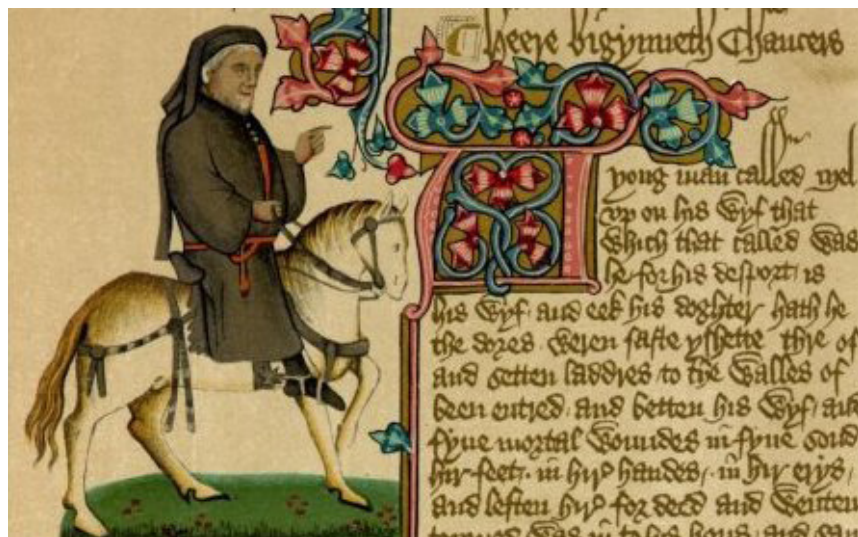 heere bigynneth Chaucers
A
yong man called Mel
vp on his wyf that
which that called was
he for his desport is
his wyf and eek his doghter hath he
the dores weren faste yshette thre of
and setten laddres to the walles of
been entred and betten his wyf and
fyue mortal woundes in fyue sond
hir feet in hir handes in hir erys
and leften hir for deed and wenten
was in to his hous and